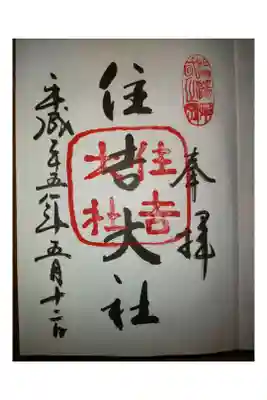 奉拝
住吉大社
住吉大社
平成五年五月十二日